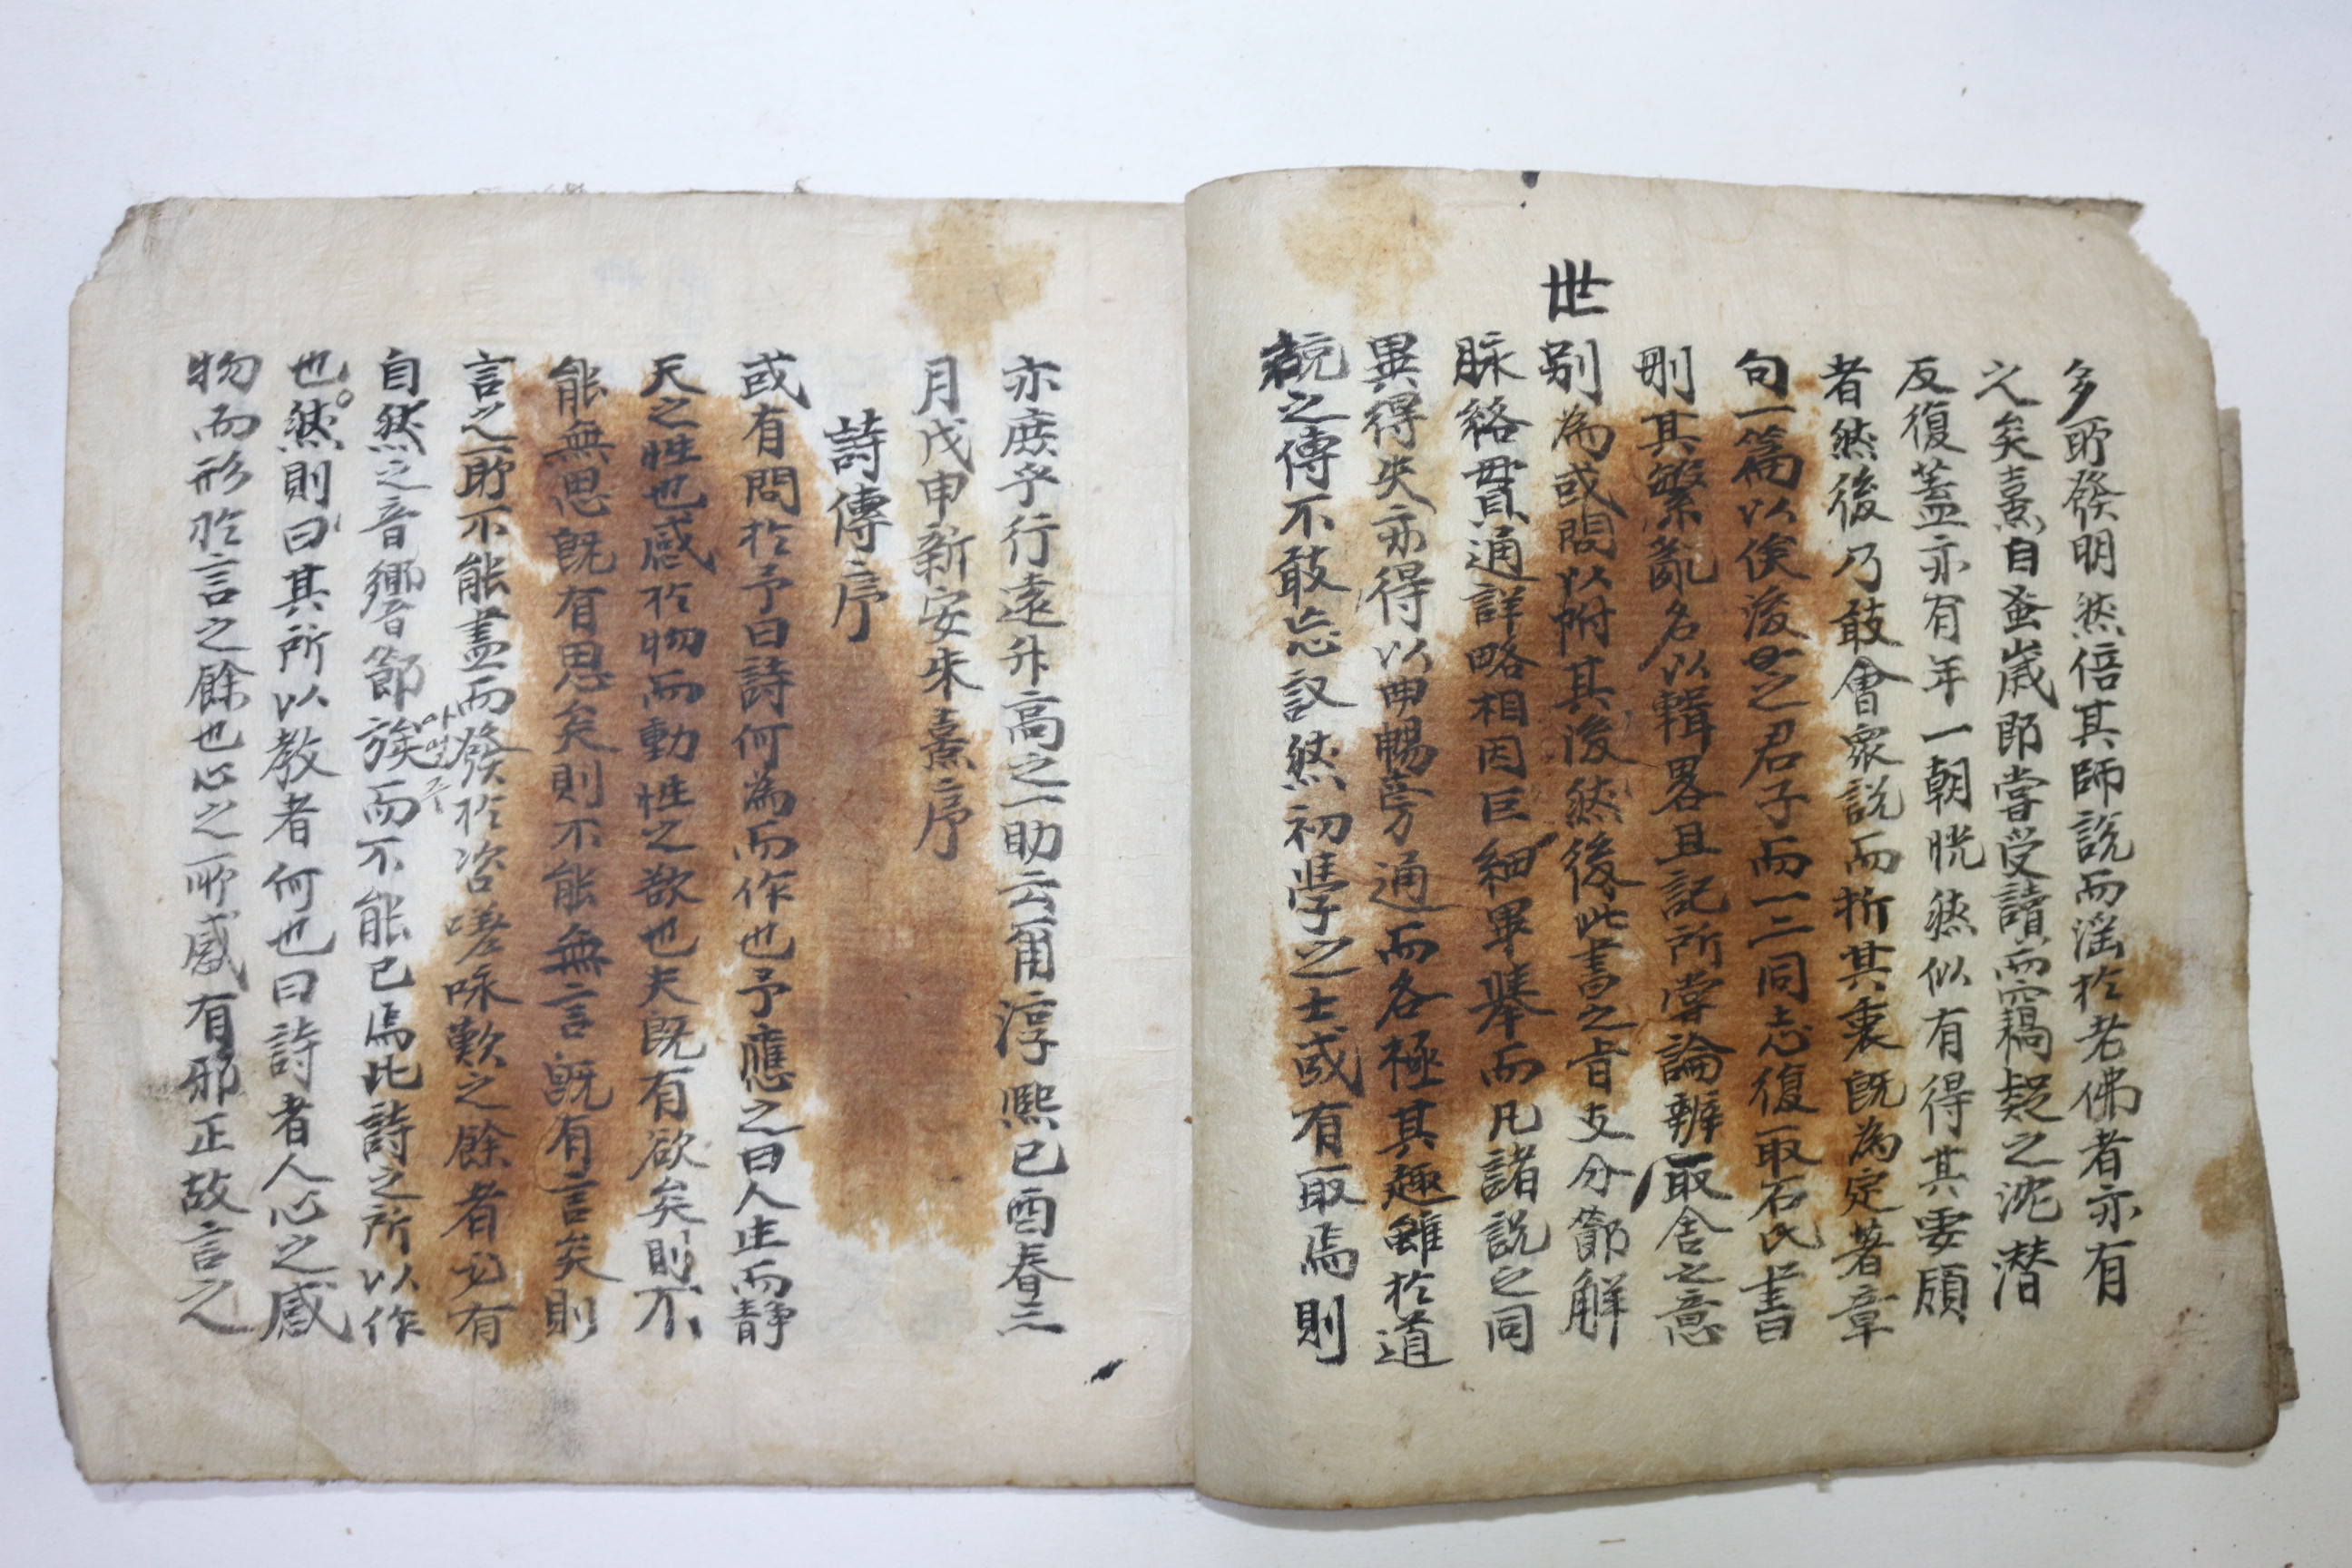 世
多所發明然倍其師說而淫於老佛者亦有
之矣熹自蚤歲即嘗受讀而竊疑之沈潛
反復蓋亦有年一朝恍然似有得其要領
者然後乃敢會衆說而折其衷既為定著章
句一篇以俟後之君子而一二同志復取石氏書
刪其繁亂名以輯畧且記所嘗論辨取舍之意
別為或問以附其後然後此書之旨支分節解
脉絡貫通詳略相因巨細畢擧而凡諸說之同
異得失亦得以曲暢旁通而各極其趣雖於道
統之傳不敢忘議然初學之士或有取焉則
亦庶乎行遠升高之一助云爾淳熙己酉春三
月戊申新安朱熹序
詩傳序
或有問於予曰詩何為而作也予應之曰人生而靜
天之性也感於物而動性之欲也夫既有欲矣則不
能無思既有思矣則不能無言既有言矣則
言之所不能盡而發於咨嗟咏歎之餘者必有
自然之音響節族而不能已焉此詩之所以作
也然則曰其所以教者何也曰詩者人心之感
物而形於言之餘也心之所感有邪正故言之